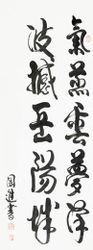 氣蒸雲夢澤
波撼岳陽城
國進書